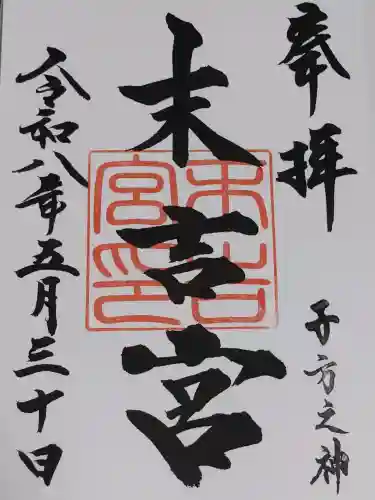 奉拝
子方之神
末吉宮
末吉宮印
令和八年五月三十日